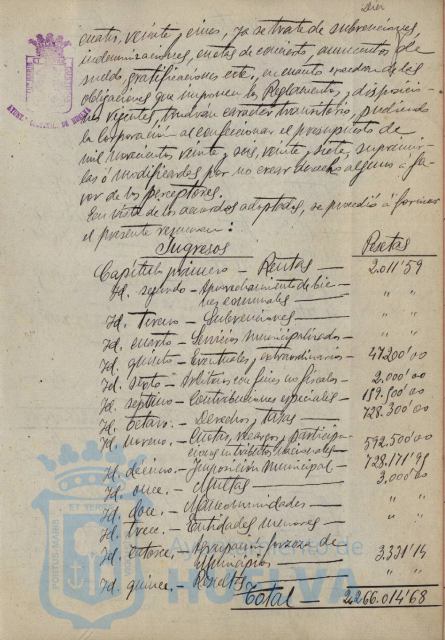 Diez
cuatro, veinte y cinco, ya se trate de subvenciones,
indemnizaciones, cuotas de concierto, aumentos de
sueldo, gratificaciones etc, en cuanto excedan de las
obligaciones que imponen los Reglamentos y disposicio-
nes vigentes, tendrán carácter transitorio, pudiendo
la Corporación al confeccionar el presupuesto de
mil novecientos veinte y seis, veinte y siete, suprimir-
las ó modificarlas por no crear derecho alguno á fa-
vor de los perceptores.
En vista de los acuerdos adoptados, se procedió á formar
el presente resumen:
Ingresos Pesetas
Capítulo primero - Rentas - 2.011'59
Id. segundo - Aprovechamiento de bie-
nes comunales - " "
Id. Tercero - Subvenciones - " "
Id. cuarto - Servicios municipalizados - " "
Id. quinto - Eventuales y extraordinarios - 47200'00
Id. sexto - Arbitrios con fines no fiscales - 2.000'00
Id. septimo - Contribuciones especiales - 159.500'00
Id. octavo - Derechos y tasas - 728.300'00
Id. noveno - Cuotas, recargos y participa-
ciones en tributos nacionales - 592.500'00
Id. decimo - Imposición municipal - 728.171'95
Id. once. - Multas - 3.000'00
Id. doce. - Mancomunidades - " "
Id. trece. - Entidades menores - " "
Id. catorce. - Agrupación forzosa de
Municipios - 3.331'14
Id. quince. - Resultas - " "
Total - 2.266.014'68
Ayuntamiento de
HUELVA
PORTUS MARIS ET TERRE